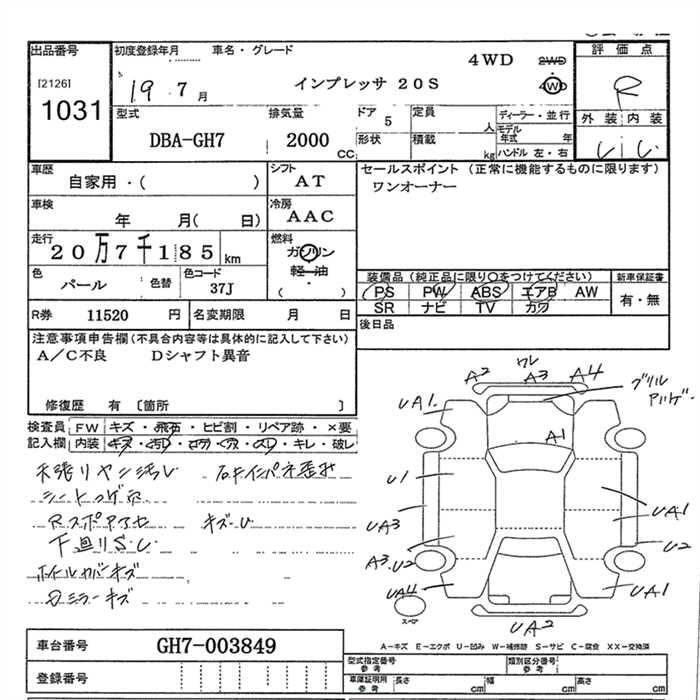 出品番号 初度登録年月 車名・グレード 4WD 2WD 評価点
[2126] 19.7月 インプレッサ 20S 4WD R
1031 型式 排気量 ドア 5 定員 人 ディーラー・並行 外装 内装
DBA-GH7 2000 CC 形状 積載 kg モデル年式 年 ハンドル 左・右
車歴 シフト セールスポイント (正常に機能するものに限ります)
自家用・( ) AT ワンオーナー
車検 冷房
年 月( 日) AAC
走行 燃料
20万7千185 km ガソリン
軽・油
( ・ )
色 色替 色コード 装備品 (純正品に限り○をつけてください) 新車保証書
パール 37J PS PW ABS エアB AW 有・無
SR ナビ TV カワ
R券 11520 円 名変期限 月 日 後日品
注意事項申告欄 (不具合内容等は具体的に記入して下さい)
A/C不良 Dシャフト異音
修復歴 有 [箇所 ]
検査員 FW キズ・飛石・ヒビ割・リペア跡・×要
記入欄 内装 キズ・汚れ・コゲ・穴・スレ・キレ・破レ
天張りヤニ汚レ
キズ・U
下廻りS.U
ホイルカバキズ
Dミラーキズ
A2 ワレ A3 A4
グリル
UA1. A1
U1 UA1
UA3 U2
A3.U2
UA4 UA1
スペア UA2
A－キズ E－エクボ U－凹み W－補修跡 S－サビ C－腐食 XX－交換済
車台番号 GH7-003849
型式指定番号 参考 類別区分番号 参考
登録番号 車庫証明用 参考 長さ cm 幅 cm 高さ cm